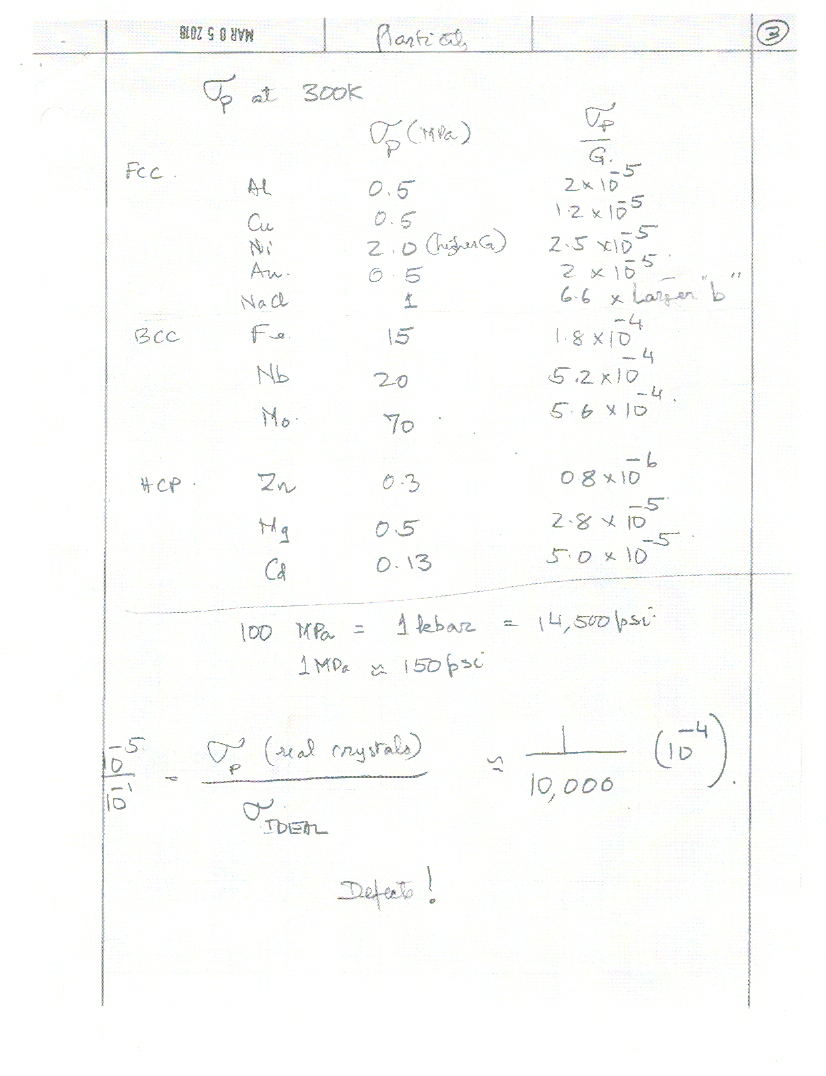 MAR 0 5 2018 Plasticity ③
σp at 300K
σp (MPa) σp/G.
FCC.
Al 0.5 2 × 10^-5
Cu 0.5 1.2 × 10^-5
Ni 2.0 (higher G) 2.5 × 10^-5
Au. 0.5 2 × 10^-5
NaCl 1 6.6 × Larger "b"
BCC Fe. 15 1.8 × 10^-4
Nb 20 5.2 × 10^-4
Mo. 70 5.6 × 10^-4.
HCP. Zn 0.3 0 8 × 10^-6
Mg 0.5 2.8 × 10^-5
Cd 0.13 5.0 × 10^-5
100 MPa = 1 kbar = 14,500 psi
1 MPa ≈ 150 psi
10^-5/10^-1 = σp (real crystals)/σIDEAL ≈ 1/10,000 (10^-4).
Defects!